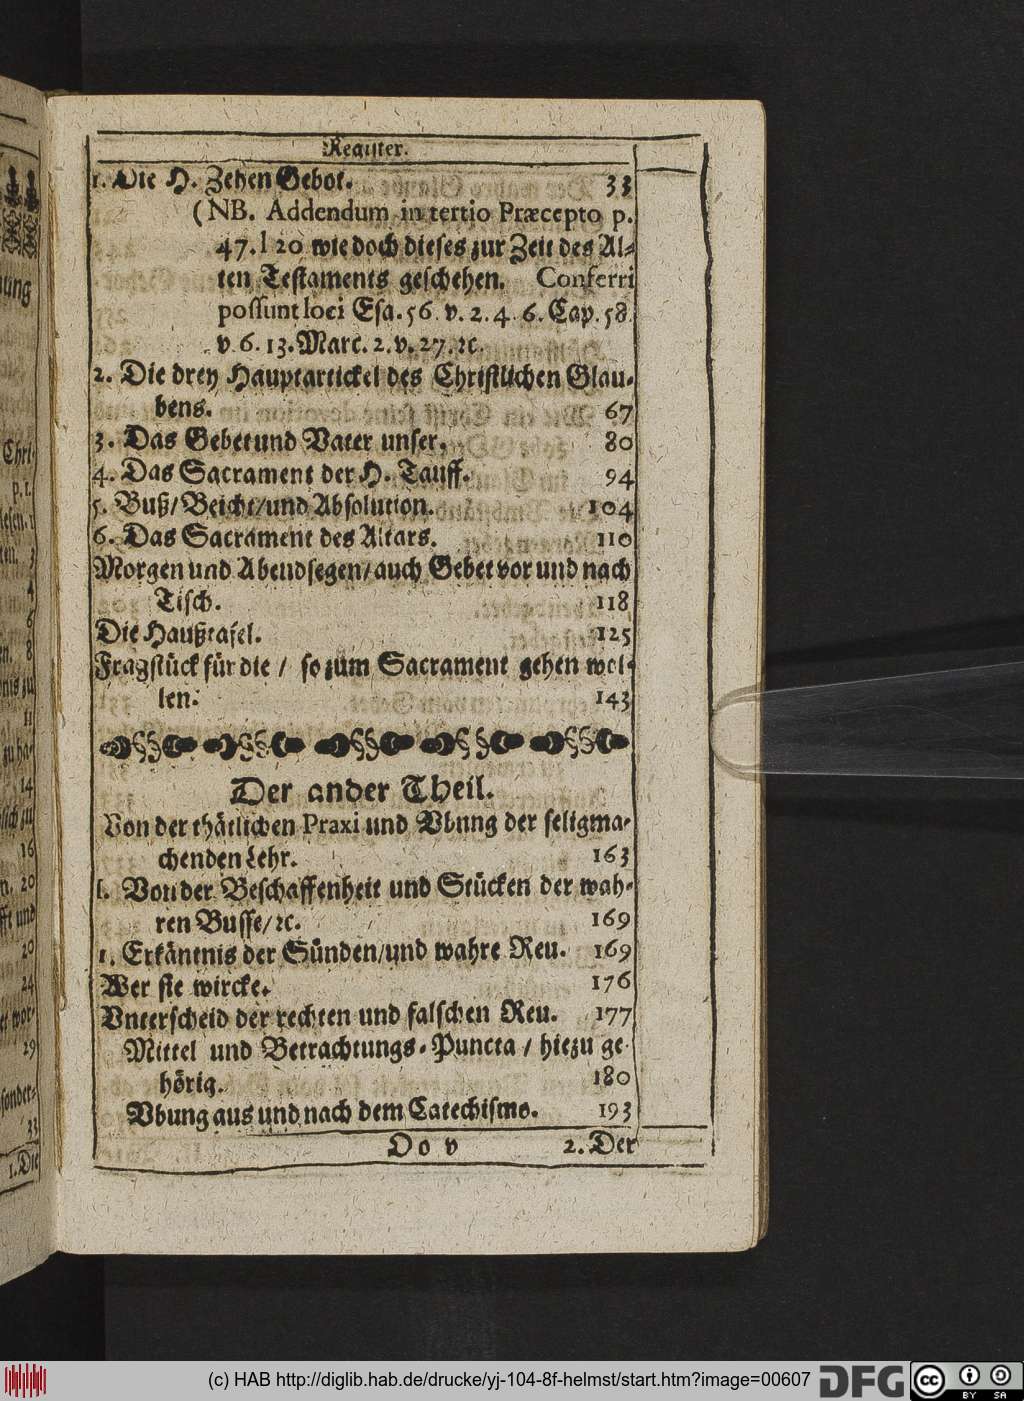 Register.
1. Die H. Zehen Gebot. 33
(NB. Addendum in tertio Præcepto p.
47. l 20 wie doch dieses zur Zeit des Al-
ten Testaments geschehen. Conferri
possunt loci Esa. 56. v. 2. 4. 6. Cap. 58.
v. 6. 13. Marc. 2. v. 27. ꝛc.
2. Die drey Hauptartickel des Christlichen Glau-
bens. 67
3. Das Gebet und Vater unser. 80
4. Das Sacrament der H. Tauff. 94
5. Buß/ Beicht/ und Absolution. 104
6. Das Sacrament des Altars. 110
Morgen und Abendsegen/ auch Gebet vor und nach
Tisch. 118
Die Haußtafel. 125
Fragstück für die / so zum Sacrament gehen wol-
len. 143
Der ander Theil.
Von der thätlichen Praxi und Vbung der seligma-
chenden Lehr. 163
I. Von der Beschaffenheit und Stücken der wah-
ren Busse/ ꝛc. 169
1. Erkäntnis der Sünden/ und wahre Reu. 169
Wer sie wircke. 176
Vnterscheid der rechten und falschen Reu. 177
Mittel und Betrachtungs-Puncta / hiezu ge-
hörig. 180
Vbung aus und nach dem Catechismo. 193
Oo v 2. Der
tung
Chri-
p. 1.
3
4
6
8
11
14
16
20
und
20
24
29
sonder-
33
1. Die
(c) HAB http://diglib.hab.de/drucke/yj-104-8f-helmst/start.htm?image=00607
DFG
cc
BY SA